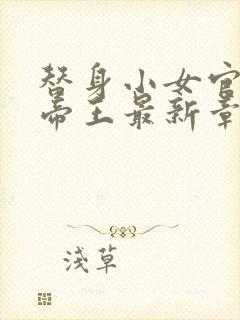 替身小女官
帝王最新章
浅草